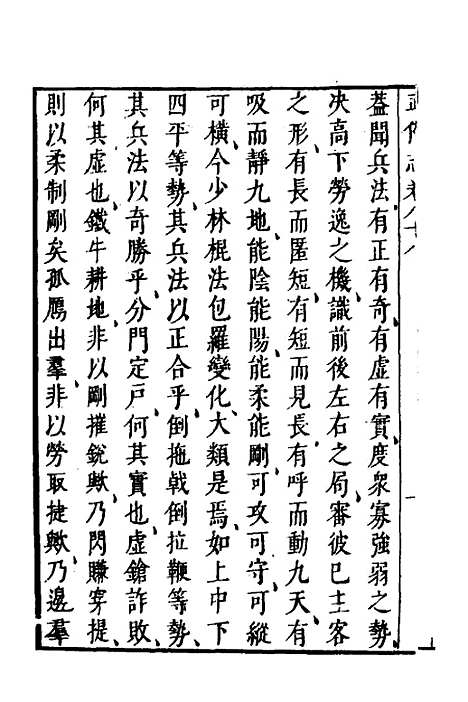 武備志卷八十八
蓋聞兵法有正有奇有虛有實度衆寡強弱之勢
決高下勞逸之機識前後左右之局審彼已主客
之形有長而匿短有短而見長有呼而動九天有
吸而靜九地能陰能陽能柔能剛可攻可守可縱
可橫今少林棍法包羅變化大類是焉如上中下
四平等勢其兵法以正合乎倒拖戟倒拉鞭等勢
其兵法以奇勝乎分門定戸何其實也虛鎗詐敗
何其虛也鐵牛耕地非以剛摧銳歟乃閃賺穿提
則以柔制剛矣孤鴈出羣非以勞取捷歟乃邊羣